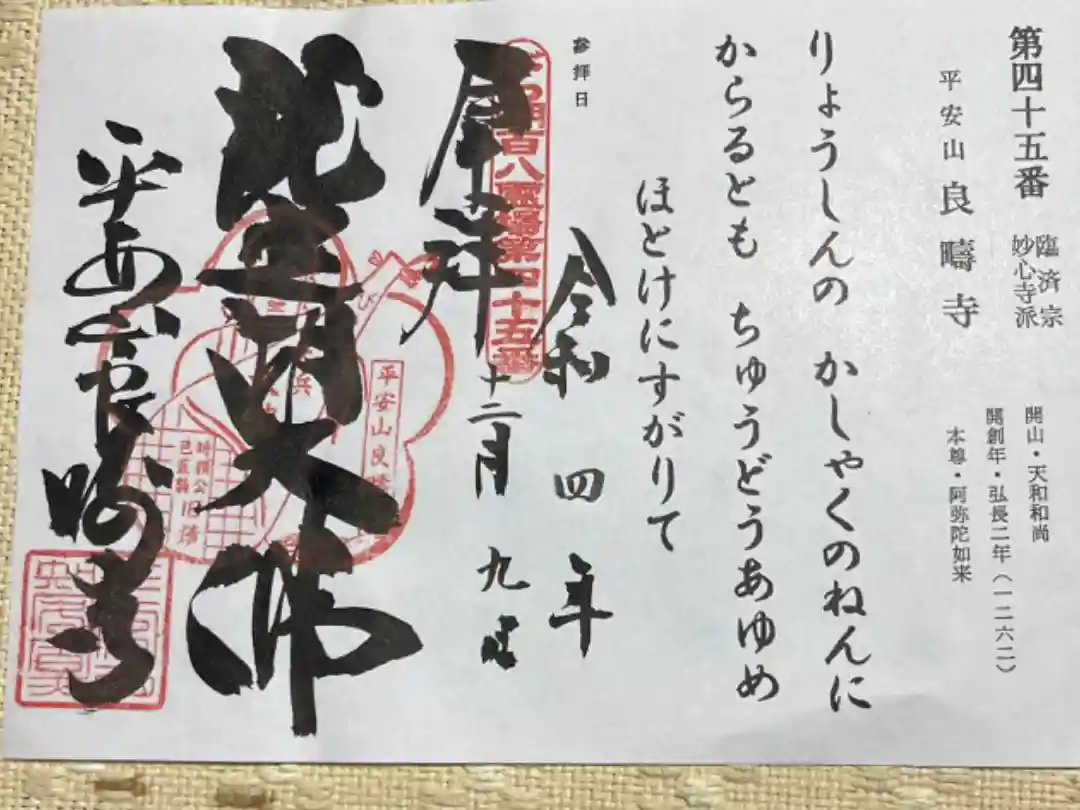 第四十五番
臨済宗
妙心寺派
平安山 良疇寺
開山・天和和尚
開創年・弘長二年（一二六二）
本尊・阿弥陀如来
りょうしんの かしゃくのねんに
からるとも ちゅうどうあゆめ
ほとけにすがりて
参拝日
令和 四 年
十二月 九日
拝
びわ湖百八霊場第四十五番
大佛
平安山良疇寺
平安山良疇